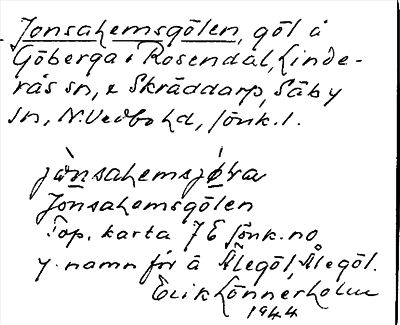 Jonsahemsgölen, göl å
Göberga o Rosendal, Linde-
rås sn, & Skräddarp, Säby
sn, N. Vedbo hd, Jönk. l.
jònsahemsjøra
Jonsahemsgölen
Top. karta 7 E Jönk. no
y. namn för ä Ålegöl, Ålegöl.
Erik Lönnerholm
1944